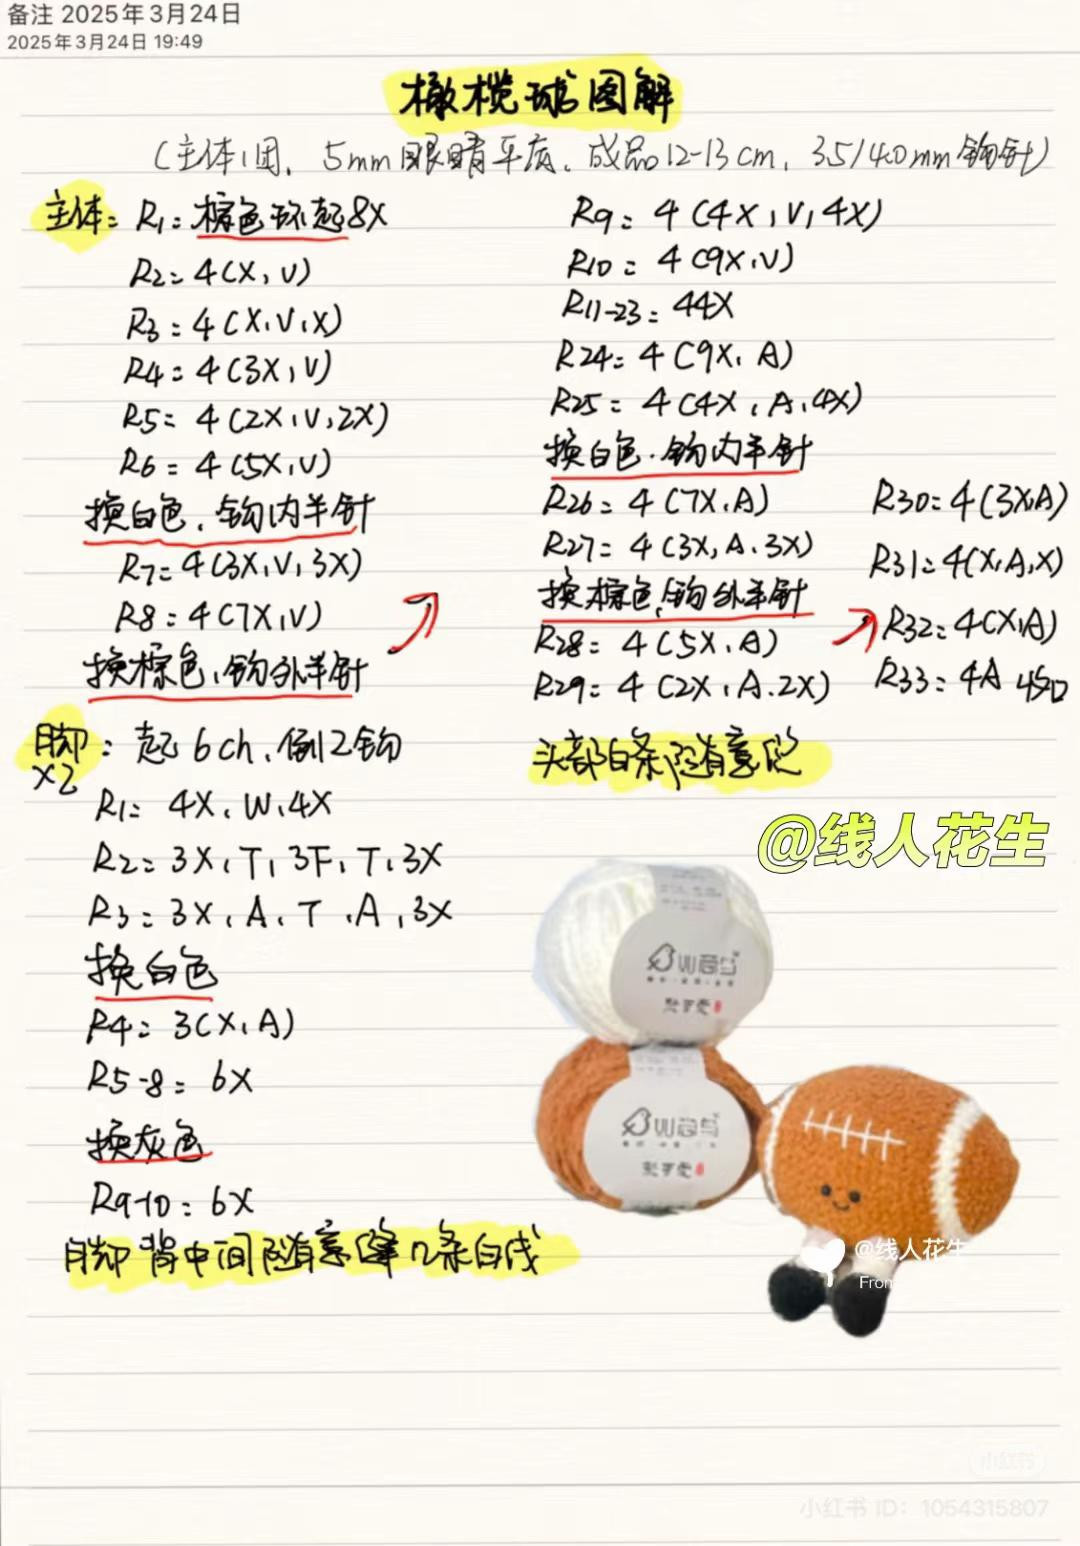 备注 2025年3月24日
2025年3月24日 19:49
橄榄球图解
(主体1团, 5mm眼睛平底, 成品12-13cm, 3.5/4.0mm钩针)
主体: R1: 棕色环起8X
R2: 4(X, V)
R3: 4(X, V, X)
R4: 4(3X, V)
R5: 4(2X, V, 2X)
R6: 4(5X, V)
换白色, 钩内半针
R7: 4(3X, V, 3X)
R8: 4(7X, V)
换棕色, 钩外半针
R9: 4(4X, V, 4X)
R10: 4(9X, V)
R11-23: 44X
R24: 4(9X, A)
R25: 4(4X, A, 4X)
换白色, 钩内半针
R26: 4(7X, A)
R27: 4(3X, A, 3X)
换棕色, 钩外半针
R28: 4(5X, A)
R29: 4(2X, A, 2X)
R30: 4(3X, A)
R31: 4(X, A, X)
R32: 4(X, A)
R33: 4A 收口
头部白条随意缝
脚: 起6ch, 倒2钩
x2
R1: 4X, W, 4X
R2: 3X, T, 3F, T, 3X
R3: 3X, A, T, A, 3X
换白色
R4: 3(X, A)
R5-8: 6X
换灰色
R9-10: 6X
脚背中间随意缝几条白线
@线人花生
@线人花生
From
小红书
小红书 ID: 1054315807